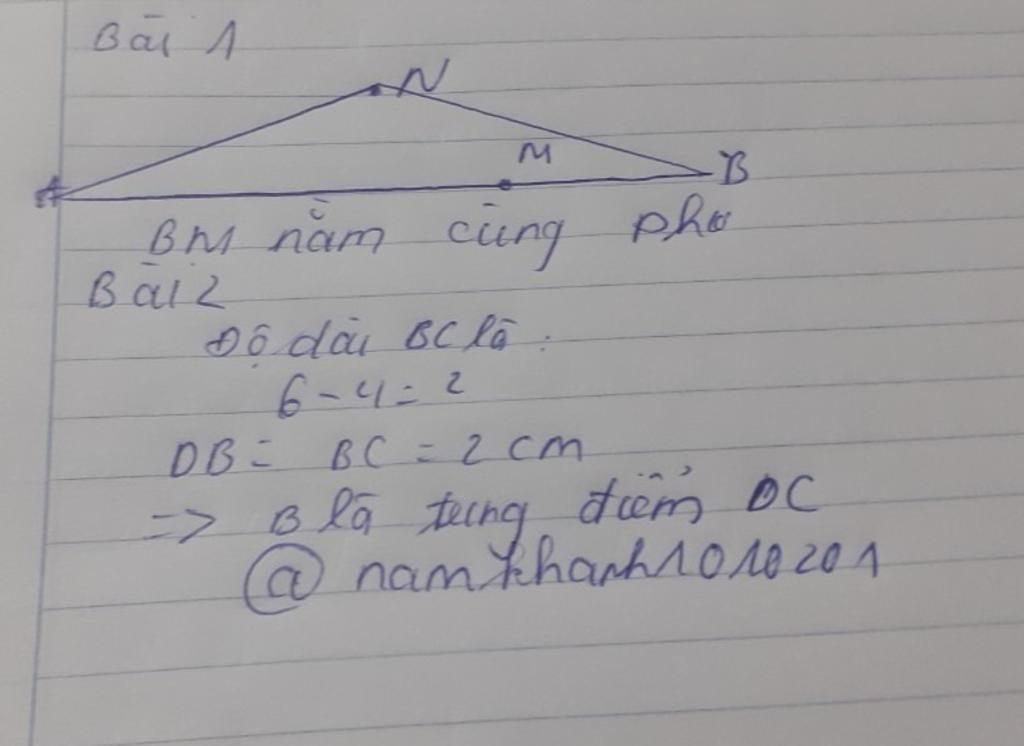 Bài 1
N
M
A
B
BM nằm cùng
Bài 2
Độ dài BC là:
6 - 4 = 2
DB = BC = 2 cm
=> B là trung điểm OC
@ namkhanh1010201